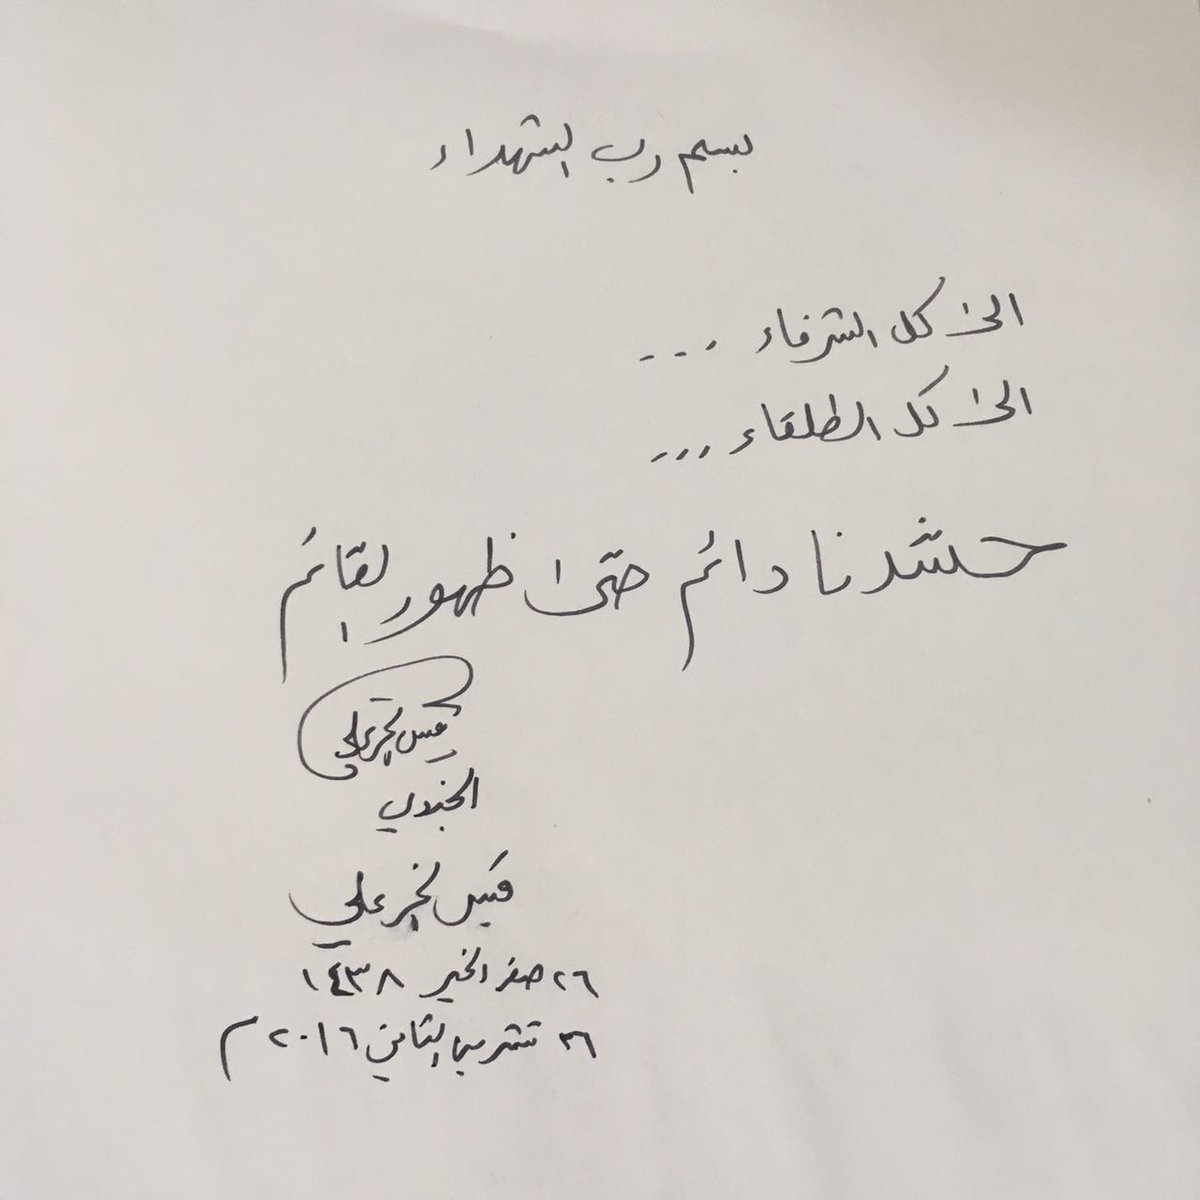 بسم رب الشهداء
الى كل الشرفاء ...
الى كل الطلقاء ...
حشدنا دائم حتى ظهور القائم
قيس الخزعلي
الجندي
قيس الخزعلي
٢٦ صفر الخير ١٤٣٨
٢٦ تشرين الثاني ٢٠١٦ م